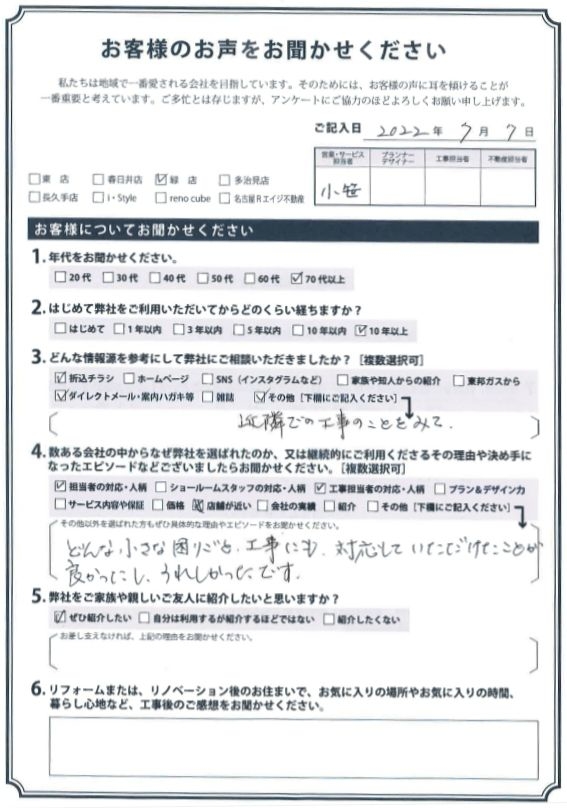 お客様のお声をお聞かせください
私たちは地域で一番愛される会社を目指しています。そのためには、お客様の声に耳を傾けることが
一番重要と考えています。ご多忙とは存じますが、アンケートにご協力のほどよろしくお願い申し上げます。
ご記入日 2022年 7月 7日
営業・サービス担当者 プランナーデザイナー 工事担当者 不動産担当者
小笹
□東 店 □春日井店 ☑緑 店 □多治見店
□長久手店 □i・Style □reno cube □名古屋Rエイジ不動産
お客様についてお聞かせください
1. 年代をお聞かせください。
□20代 □30代 □40代 □50代 □60代 ☑70代以上
2. はじめて弊社をご利用いただいてからどのくらい経ちますか？
□はじめて □1年以内 □3年以内 □5年以内 □10年以内 ☑10年以上
3. どんな情報源を参考にして弊社にご相談いただきましたか？［複数選択可］
☑折込チラシ □ホームページ □SNS（インスタグラムなど） □家族や知人からの紹介 □東邦ガスから
☑ダイレクトメール・案内ハガキ等 □雑誌 ☑その他［下欄にご記入ください］
近隣での工事のことをみて.
4. 数ある会社の中からなぜ弊社を選ばれたのか、又は継続的にご利用くださるその理由や決め手に
なったエピソードなどございましたらお聞かせください。［複数選択可］
☑担当者の対応・人柄 □ショールームスタッフの対応・人柄 ☑工事担当者の対応・人柄 □プラン＆デザイン力
□サービス内容や保証 □価格 ☑店舗が近い □会社の実績 □紹介 □その他［下欄にご記入ください］
その他以外を選ばれた方もぜひ具体的な理由やエピソードをお聞かせください。
どんな小さな困りごと、工事にも、対応していただけたことが
良かったし、うれしかったです.
5. 弊社をご家族や親しいご友人に紹介したいと思いますか？
☑ぜひ紹介したい □自分は利用するが紹介するほどではない □紹介したくない
お差し支えなければ、上記の理由をお聞かせください。
6. リフォームまたは、リノベーション後のお住まいで、お気に入りの場所やお気に入りの時間、
暮らし心地など、工事後のご感想をお聞かせください。